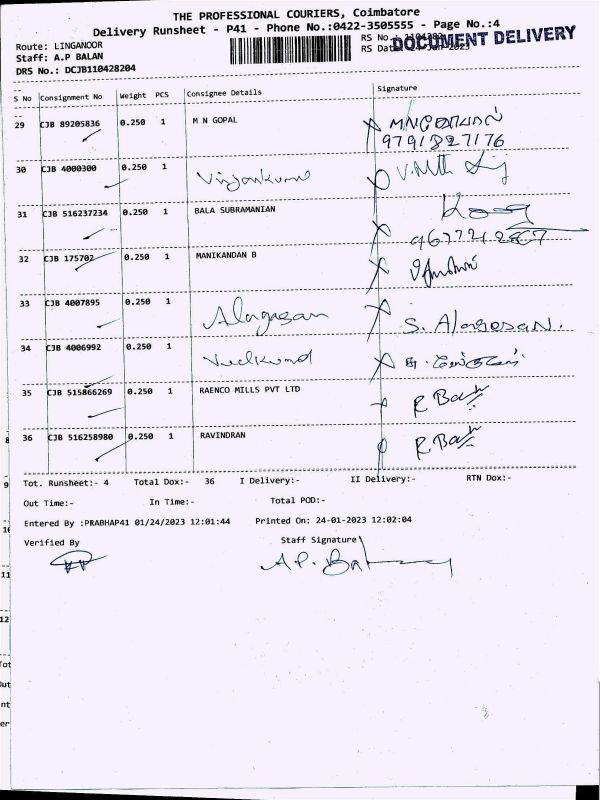 THE PROFESSIONAL COURIERS, Coimbatore
Delivery Runsheet - P41 - Phone No.:0422-3505555 - Page No.:4
Route: LINGANOOR
RS No.
DOCUMENT DELIVERY
Staff: A.P BALAN
DRS No.: DCJB110428204
S No Consignment No Weight PCS Consignee Details Signature
29 CJB 89205836 0.250 1 M N GOPAL
9791827176
30 CJB 4000300 0.250 1
31 CJB 516237234 0.250 1 BALA SUBRAMANIAN
32 CJB 175702 0.250 1 MANIKANDAN B
33 CJB 4007895 0.250 1 Alagesan S. Alagesan.
34 CJB 4006992 0.250 1
35 CJB 515866269 0.250 1 RAENCO MILLS PVT LTD
36 CJB 516258980 0.250 1 RAVINDRAN
Tot. Runsheet:- 4 Total Dox:- 36 I Delivery:- II Delivery:- RTN Dox:-
Out Time:- In Time:- Total POD:-
Entered By :PRABHAP41 01/24/2023 12:01:44 Printed On: 24-01-2023 12:02:04
Verified By Staff Signature